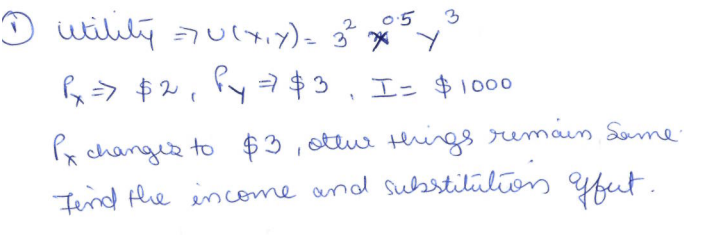 ① utility ⇒ U(x,y) = 3² x^0.5 y^3
Px ⇒ $2, Py ⇒ $3, I = $1000
Px changes to $3, other things remain same.
Find the income and substitution effect.